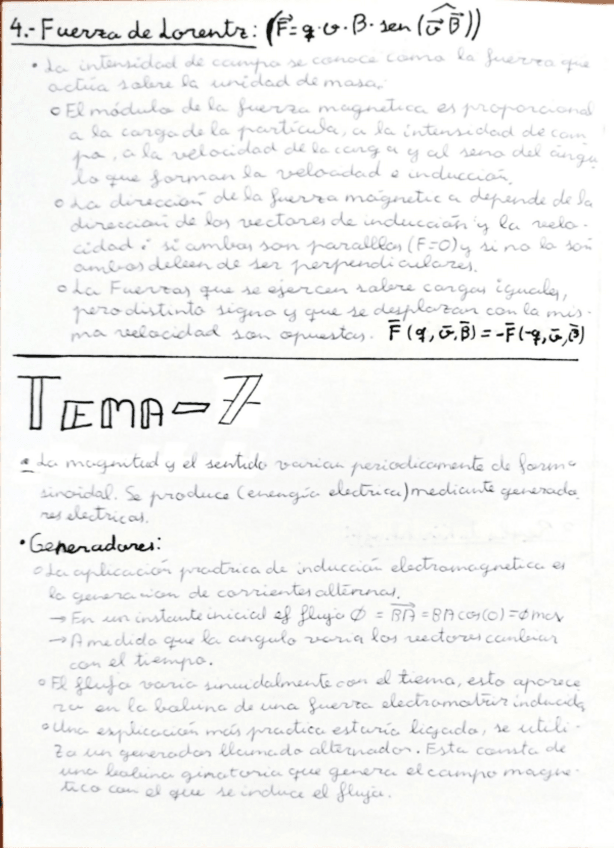 4.- Fuerza de Lorentz: (F⃗ = q · v · B · sen (v⃗ B⃗))
• La intensidad de campo se conoce como la fuerza que
actúa sobre la unidad de masa.
○ El módulo de la fuerza magnetica es proporcional
a la carga de la partícula, a la intensidad de cam
po, a la velocidad de la carga y al seno del ángu
lo que forman la velocidad e inducción.
○ La dirección de la fuerza mágnetica depende de la
dirección de los vectores de inducción y la velo-
cidad: si ambos son paralllos (F=0) y si no lo son
ambos deben de ser perpendiculares.
○ La Fuerzas que se ejercen sobre cargas iguales,
pero distinto signo y que se desplazan con la mis-
ma velocidad son opuestas. F̄ (q, v̄, B̄) = -F̄ (-q, v̄, B̄)
TEMA - 7
• La magnitud y el sentido varian periodicamente de forma
sinoidal. Se produce (energía electrica) mediante generado
res electricos.
• Generadores:
○ La aplicación practrica de inducción electromagnetica es
la generacion de corrientes alternas.
→ En un instante inicial el flujo Ø = B⃗A⃗ = BA cos(0) = Ø max
→ A medida que la angulo varia los vectores cambian
con el tiempo.
○ El flujo varia sinuidalmente con el tiema, esto aparece
ra en la bobina de una fuerza electromotriz inducida
○ Una explicación más practica estaría ligada, se utili-
za un generador llamado alternador. Esta consta de
una bobina giratoria que genera el campo magne-
tico con el que se induce el flujo.